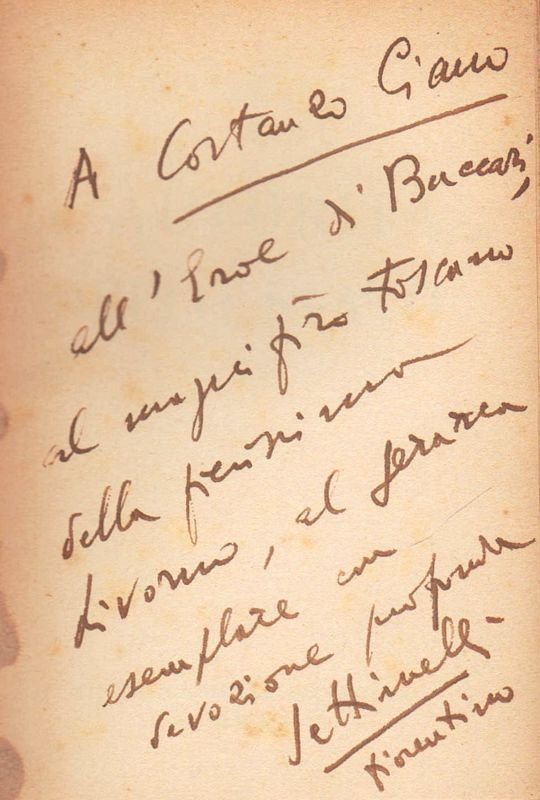 A Costanzo Ciano
all'Eroe di Buccari,
al magnifico toscano
della fierissima
Livorno, al gerarca
esemplare con
devozione profonda
Settimelli
fiorentino